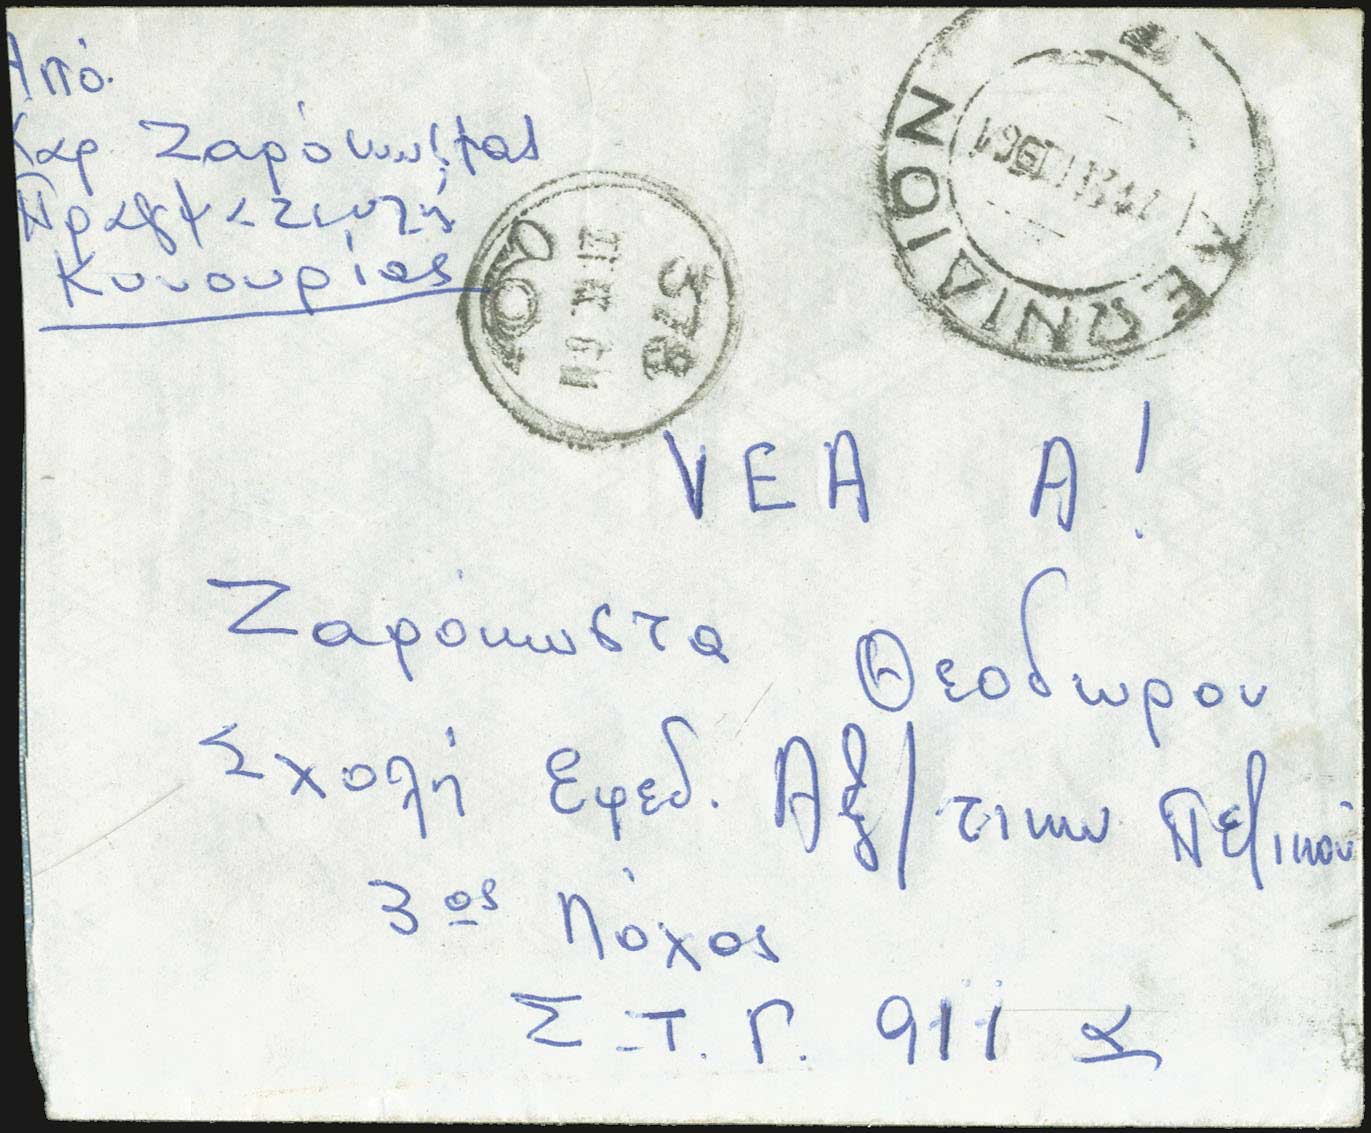 Από
Χαρ Ζαρόκωστας
Πραγματευτή
Κυνουρίας
ΛΕΩΝΙΔΙΟΝ
578
VEA A!
Ζαρόκωστα Θεοδωρου
Σχολή Εφεδ. Αξ/τικων Πεζικού
3ος Λόχος
Σ.Τ.Γ. 911 α